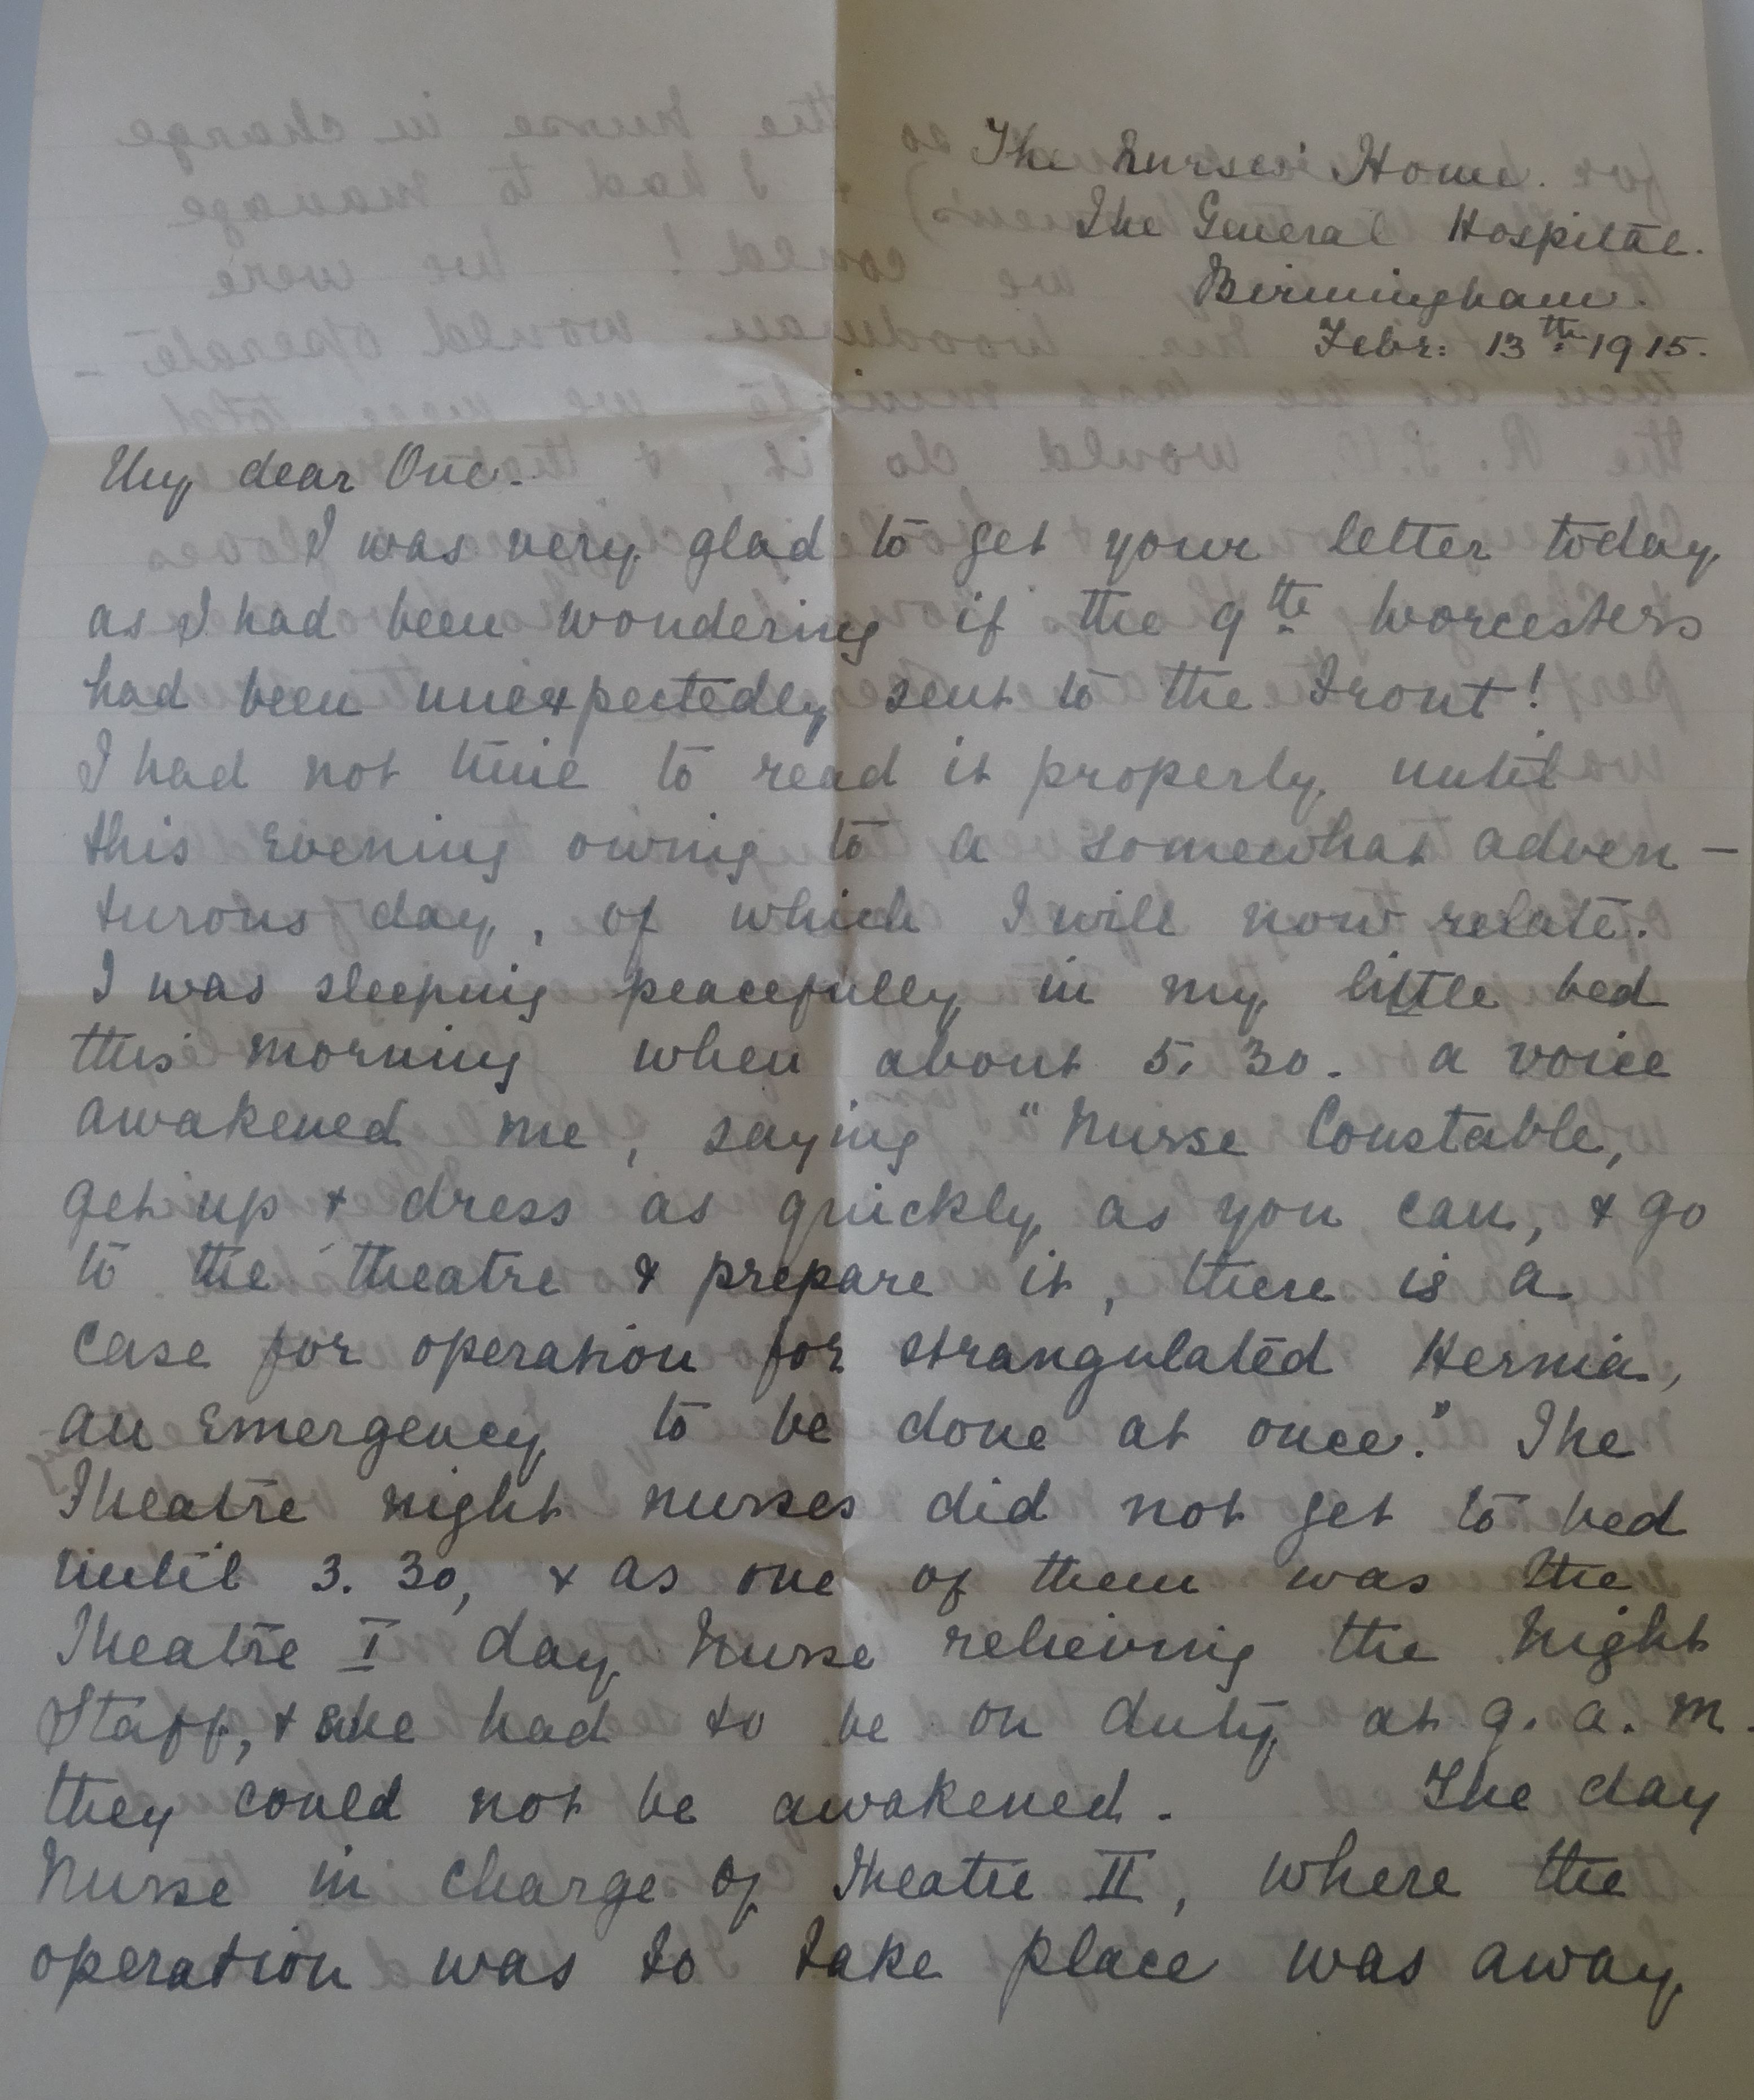 The Nurses' Home.
The General Hospital.
Birmingham.
Febr: 13th 1915.
My dear One.
I was very glad to get your letter today
as I had been wondering if the 9th Worcesters
had been unexpectedly sent to the Front!
I had not time to read it properly until
this Evening owing to a somewhat adven-
turous day, of which I will now relate.
I was sleeping peacefully in my little bed
this morning when about 5.30. a voice
awakened me, saying "Nurse Constable,
get up & dress as quickly as you can, & go
to the theatre & prepare it, there is a
case for operation for strangulated Hernia,
an Emergency to be done at once." The
Theatre night nurses did not get to bed
until 3.30, & as one of them was the
Theatre I day Nurse relieving the Night
Staff, & she had to be on duty at 9. a.m.
they could not be awakened. The day
Nurse in charge of Theatre II, where the
operation was to take place was away